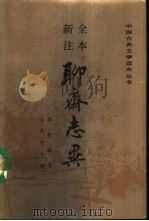 中国古典文学读本丛书
全本
新注
聊齋志異